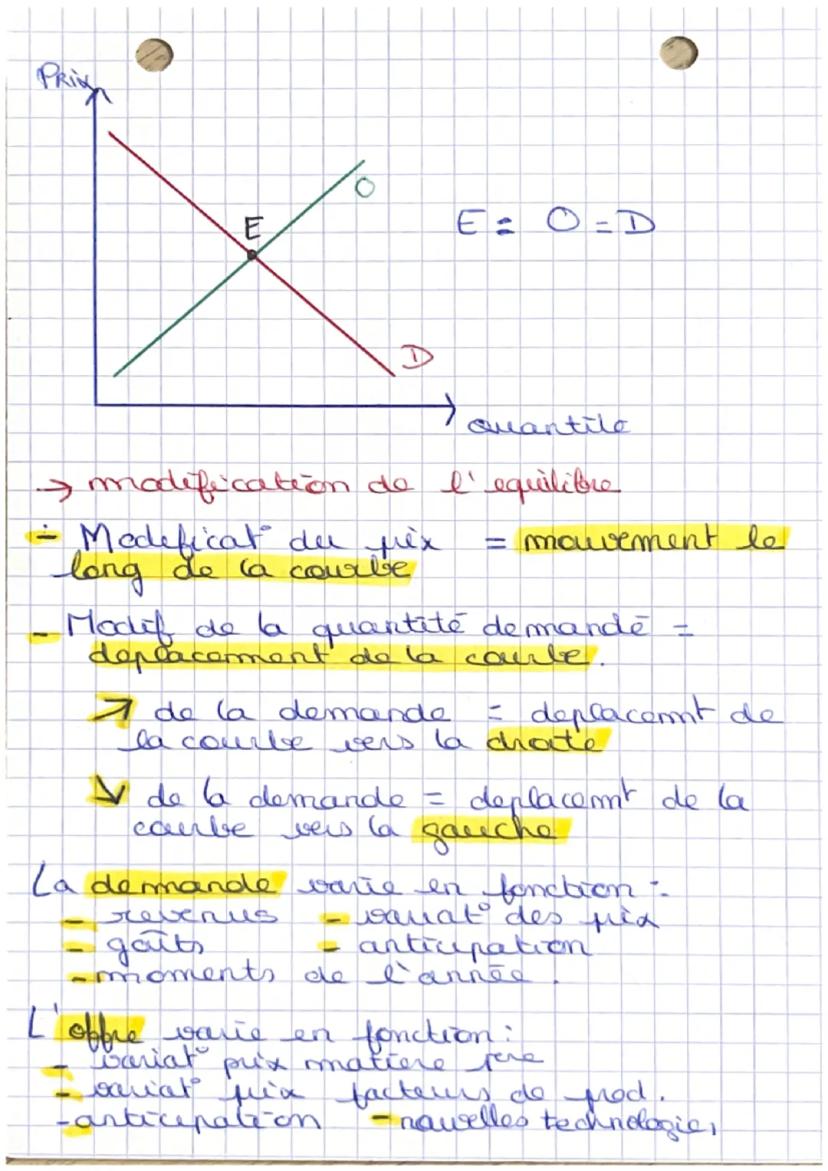 Prix
O
E
E = O = D
D
quantité
→ modification de l'equilibre
- Modificat° du prix = mouvement le
long de la courbe
- Modif de la quantité demandé =
deplacement de la courbe.
↗ de la demande = deplacemnt de
la courbe vers la droite
↘ de la demande = deplacemnt de la
courbe vers la gauche
La demande varie en fonction :
- revenus - variat° des prix
- goûts - anticipation
- moments de l'année.
L'offre varie en fonction :
- variat° prix matiere 1ere
- variat° prix facteurs de prod.
- anticipation - nouvelles technologies